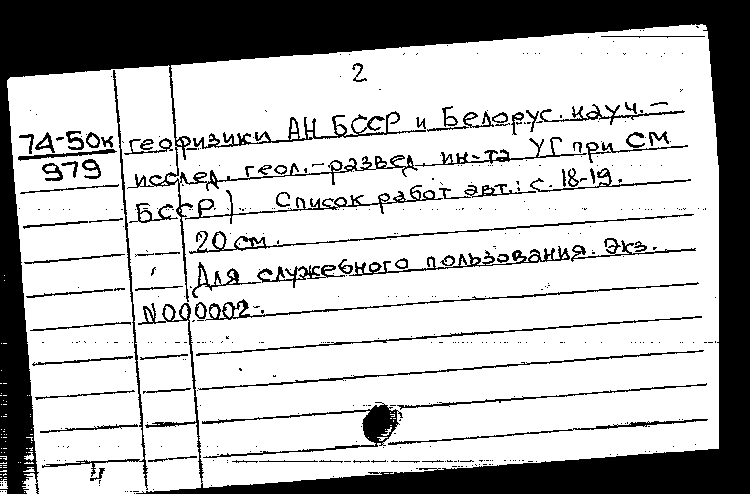 2
74-50к геофизики АН БССР и Белорус. науч.-
979 исслед. геол.-развед. ин-та УГ при СМ
БССР). Список работ авт.: с. 18-19.
20 см.
Для служебного пользования. Экз.
N000002.
4